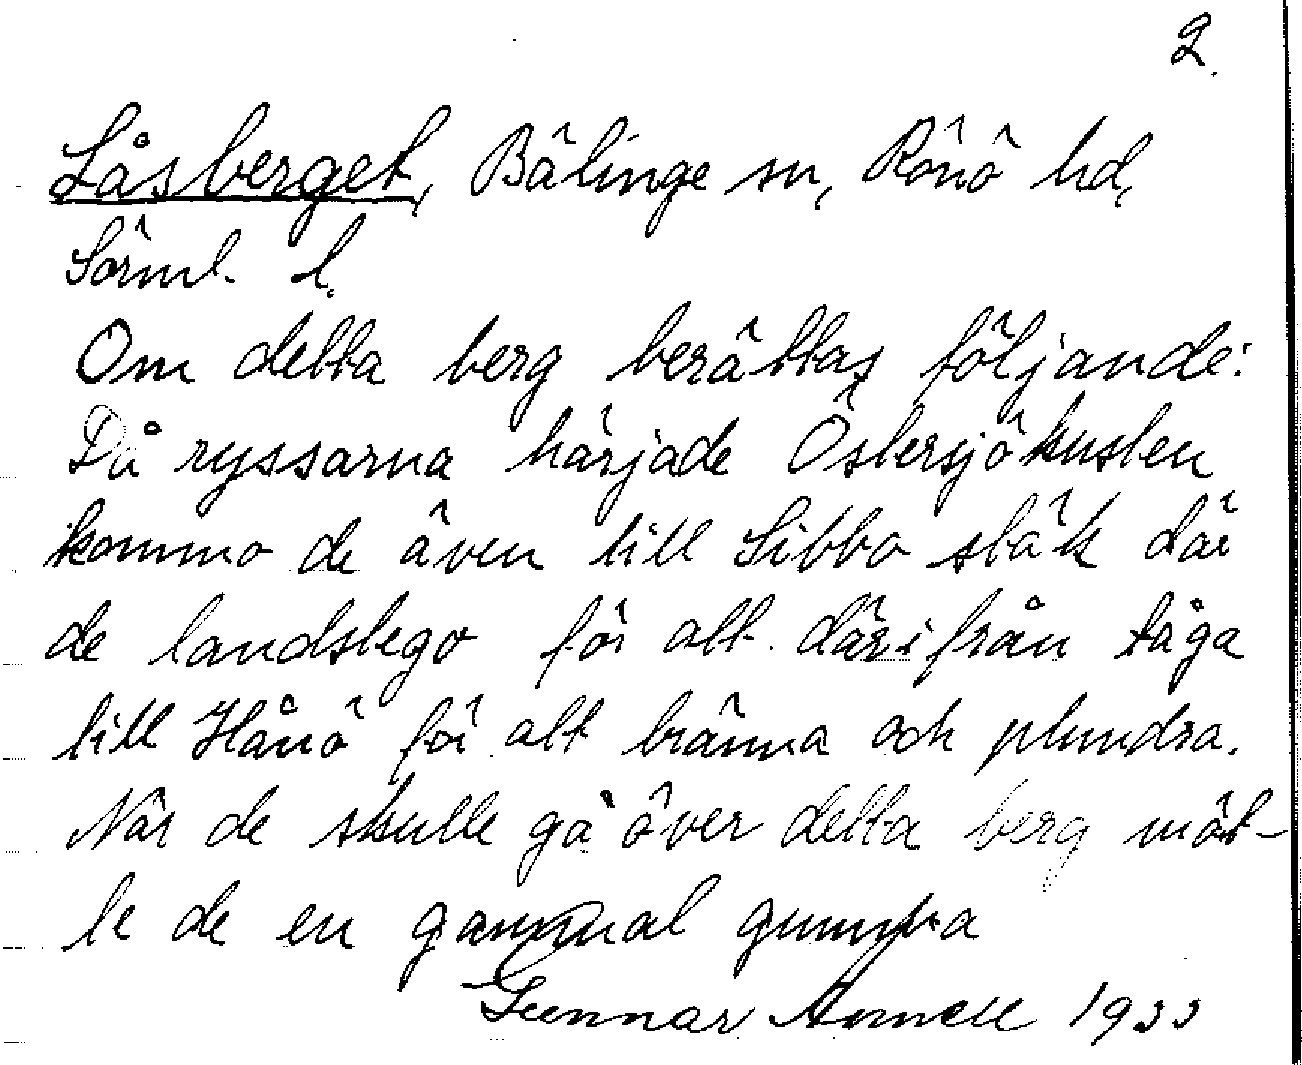 2.
Låsberget, Bälinge sn, Rönö hd,
Sörml. l.
Om detta berg berättas följande:
Då ryssarna härjade Östersjökusten
kommo de även till Sibbo stäk där
de landstego för att därifrån tåga
till Hånö för att bränna och plundra.
När de skulle gå över detta berg möt-
te de en gammal gumma
Gunnar Annell 1933